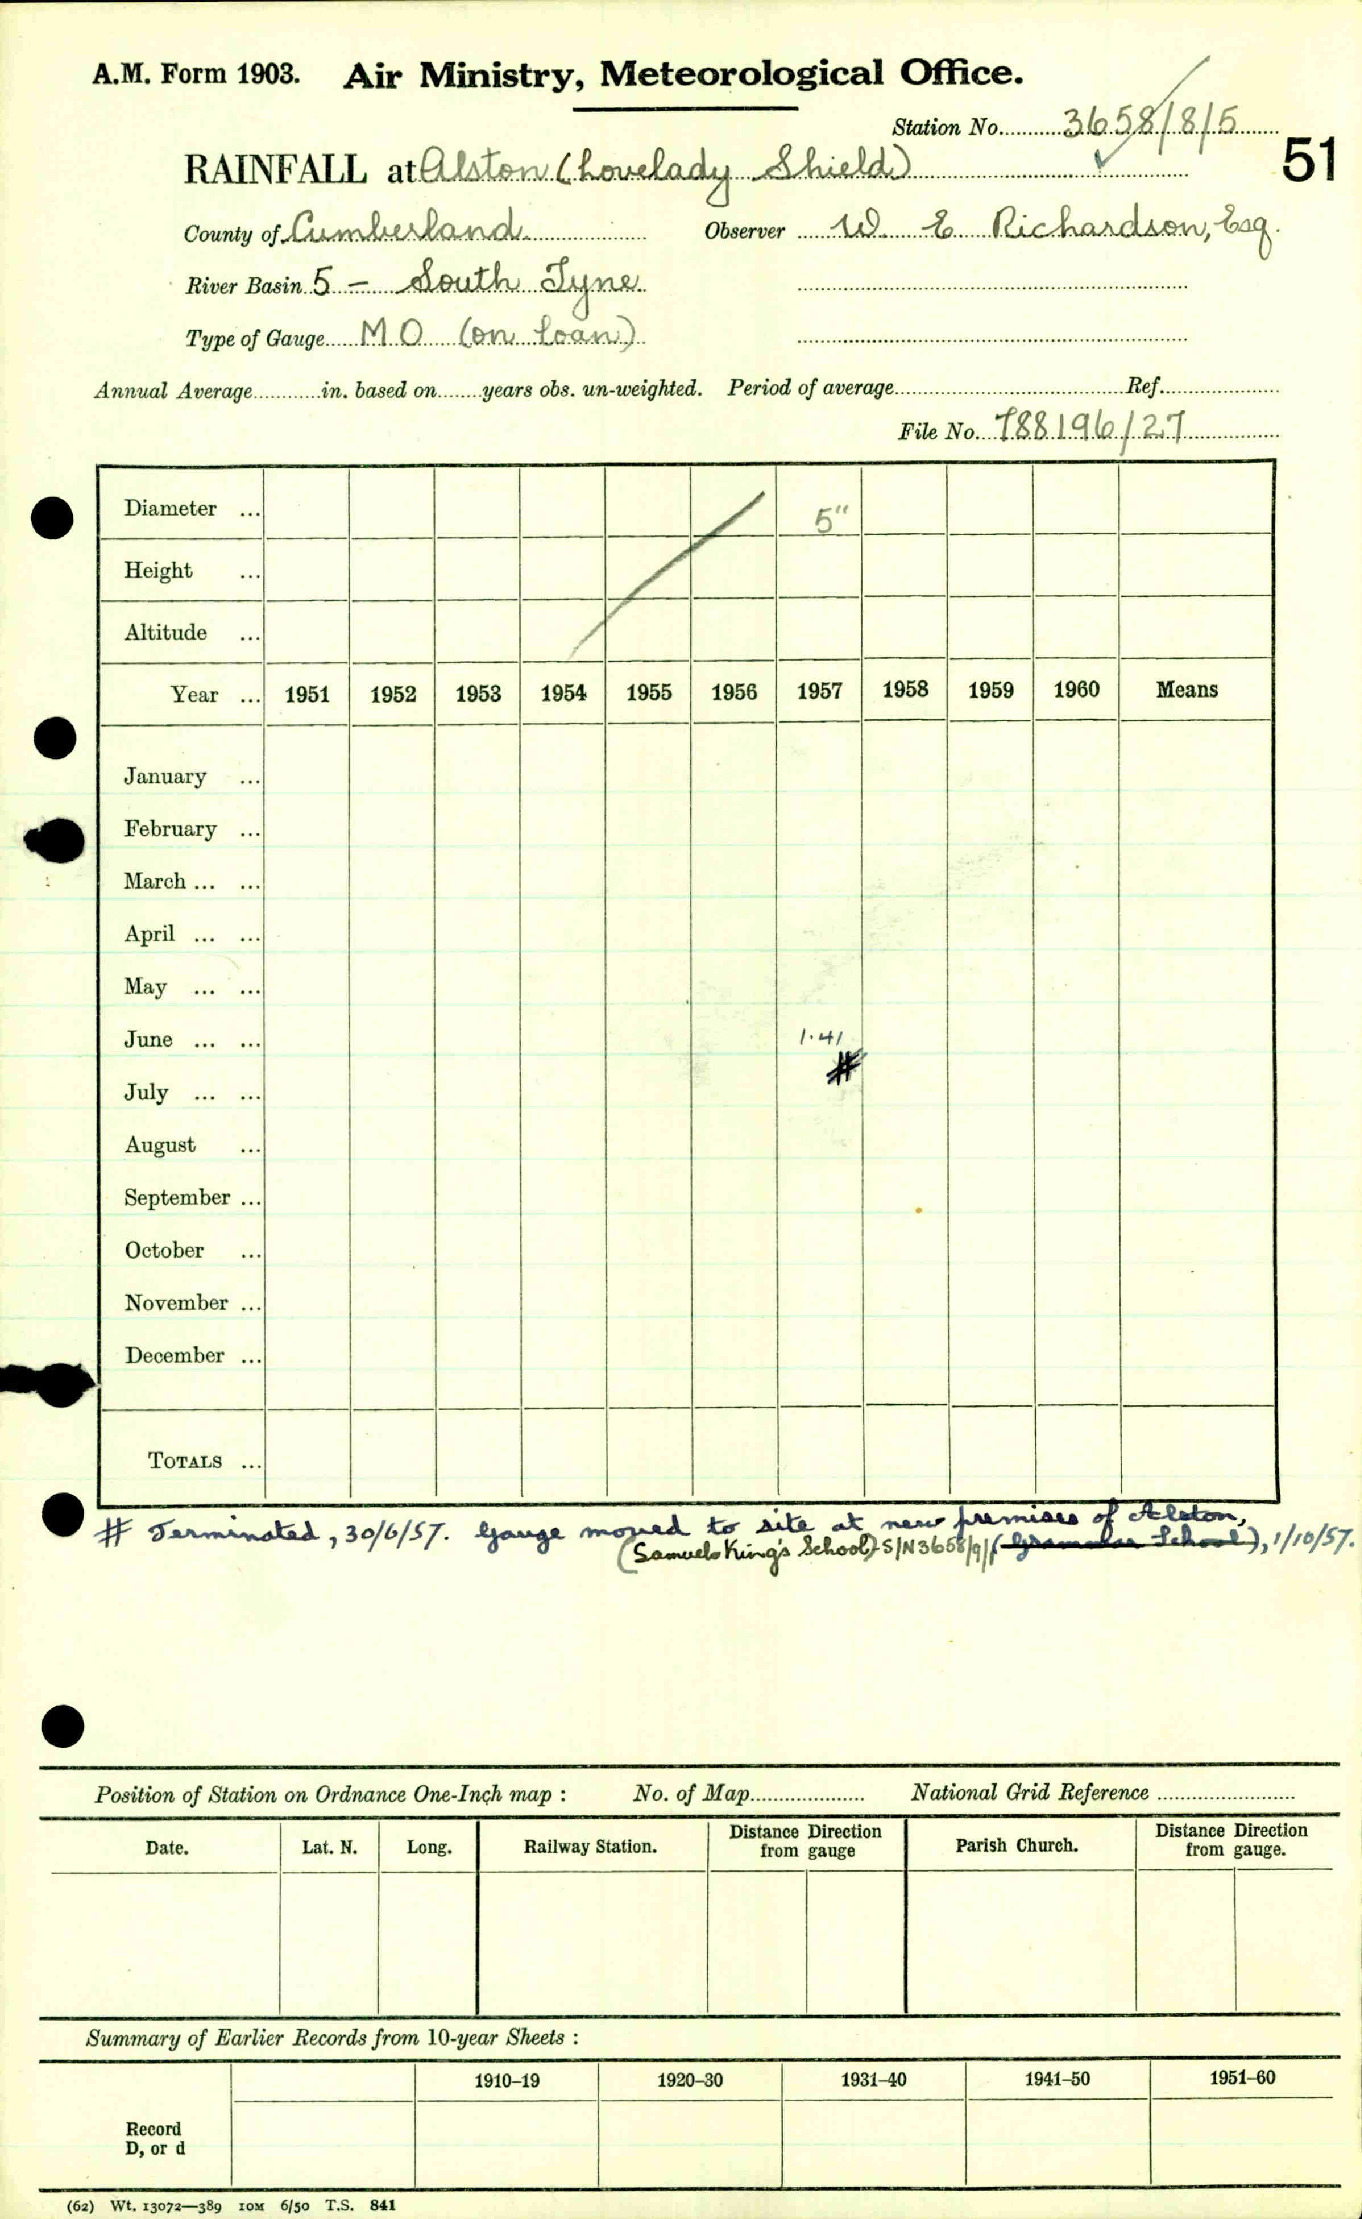 A.M. Form 1903. Air Ministry, Meteorological Office.
Station No. 3658/8/5
51
RAINFALL at Alston (Lovelady Shield)
County of Cumberland Observer W E Richardson, Esq.
River Basin 5 – South Tyne
Type of Gauge M O (on loan)
Annual Average in. based on years obs. un-weighted. Period of average Ref.
File No. 788196/27
Diameter ... 5"
Height ...
Altitude ...
Year ... 1951 1952 1953 1954 1955 1956 1957 1958 1959 1960 Means
January ...
February ...
March ... ...
April ... ...
May ... ...
June ... ... 1.41
#
July ... ...
August ...
September ...
October ...
November ...
December ...
TOTALS ...
# Terminated, 30/6/57. Gauge moved to site at new premises of Alston,
(Samuel King's School) S/N 3658/9/1 (Grammar School), 1/10/57.
Position of Station on Ordnance One-Inch map : No. of Map National Grid Reference
Date. Lat. N. Long. Railway Station. Distance Direction from gauge Parish Church. Distance Direction from gauge.
Summary of Earlier Records from 10-year Sheets :
1910–19 1920–30 1931–40 1941–50 1951–60
Record
D, or d
(62) Wt. 13072—389 10M 6/50 T.S. 841